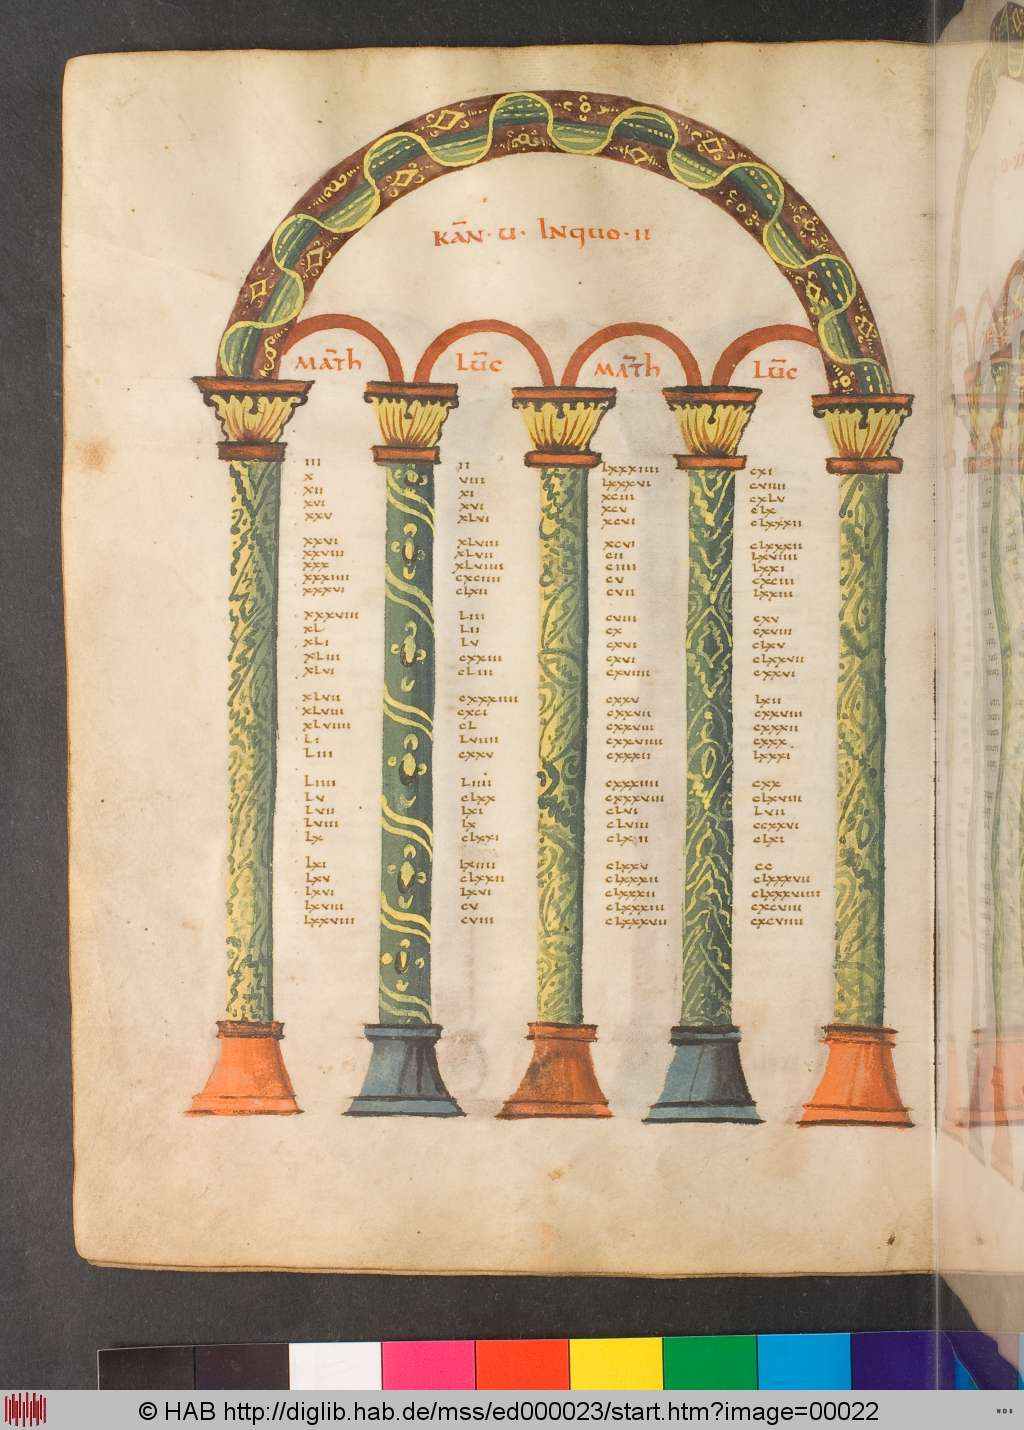 KAN̄ · U · INQUO · II
MAT̄H LUC̄ MAT̄H LUC̄
III II LXXXIIII CXI
X VIII LXXXVI CVIIII
XII XI XCIII CXLV
XVI XVI XCV CLX
XXV XLVI XCVI CLXXXII
XXVI XLVIII XCVI CLXXXII
XXVIII XLVII CII LXVIIII
XXX XLVIIII CIIII LXXI
XXXIIII CXCIIII CV CXCIII
XXXVI CLXII CVII LXXIII
XXXVIII LIII CVIII CXV
XL LII CX CXVIII
XLI LV CXVI CLXV
XLIII CXXIII CXVI CLXXVII
XLVI CLIII CXVIIII CXXVI
XLVII CXXXIIII CXXV LXII
XLVIII CXCI CXXVII CXXVIII
XLVIIII CL CXXVIII CXXXII
LI LVIIII CXXVIIII CXXX
LIII CXXV CXXXII LXXXI
LIIII LIIII CXXXIIII CXX
LV CLXX CXXXVIII CLXVIII
LVII LXI CLVI LVII
LVIII LX CLVIII CCXXVI
LX CLXXI CLXII CLXI
LXI LXIIII CLXXV CC
LXV CLXXII CLXXXII CLXXXVII
LXVI LXVI CLXXXII CLXXXVIIII
LXVIII CV CLXXXIII CXCVIII
LXXVIII CVIII CLXXXVII CXCVIIII
© HAB http://diglib.hab.de/mss/ed000023/start.htm?image=00022
WDB